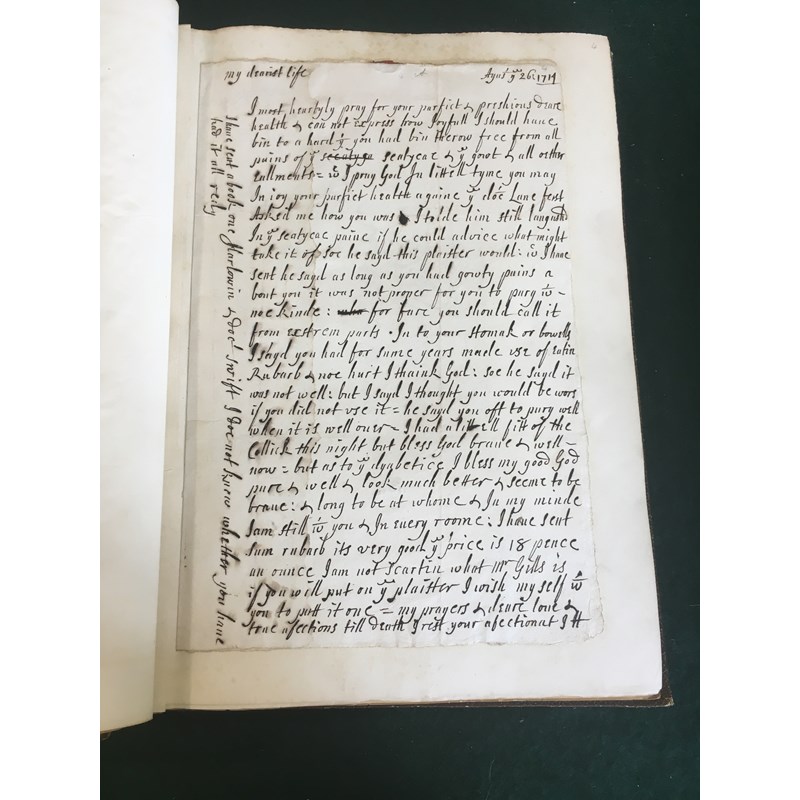 my dearist life Agust yͤ 26: 1714
I most heartyly pray for your parfict & preshious deare
health & can not express how Joyfull I should have
bin to a hard yͭ you had bin therow free from all
pains of yͤ seatycae & yͤ gout & all other
eallments = wͨ I pray God In littell tyme you may
In ioy your parfict health againe yͤ doc Lane fest
Asked me how you was I toulde him still languishd
In yͤ seatycae paine if he could advice what might
take it of soe he sayd this plaister would: wͨ I have
sent he sayd as long as you had gowty pains a
bout you it was not proper for you to purg wͭʰ -
noe kinde: for fare you should call it
from exstrem parts . In to your stomak or bowells
I sayd you had for sume years made use of ratin
Rubarb & noe hurt I thaink God: soe he sayd it
was not well: but I sayd I thought you would be wors
if you did not use it = he sayd you oft to purg well
when it is well over - I had a littell fitt of the
Collick this night but bless God brave & well -
now = but as to yͤ dyabetice I bless my good God
pure & well & look much better & seeme to be
brave: & long to be at whome & In my minde
I am still wͭʰ you & In every roome: I have sent
sum rubarb its very good yͤ price is 18 pence
an ounce I am not scartin what Mr Gills is
if you will put on yͤ plaister I wish my self wͭʰ
you to putt it one = my prayers & deare love &
true afections till death I rest your afectionat I H
I have sent a book one Harlowin & doct swift I doe not knew whether you have
had it all redy